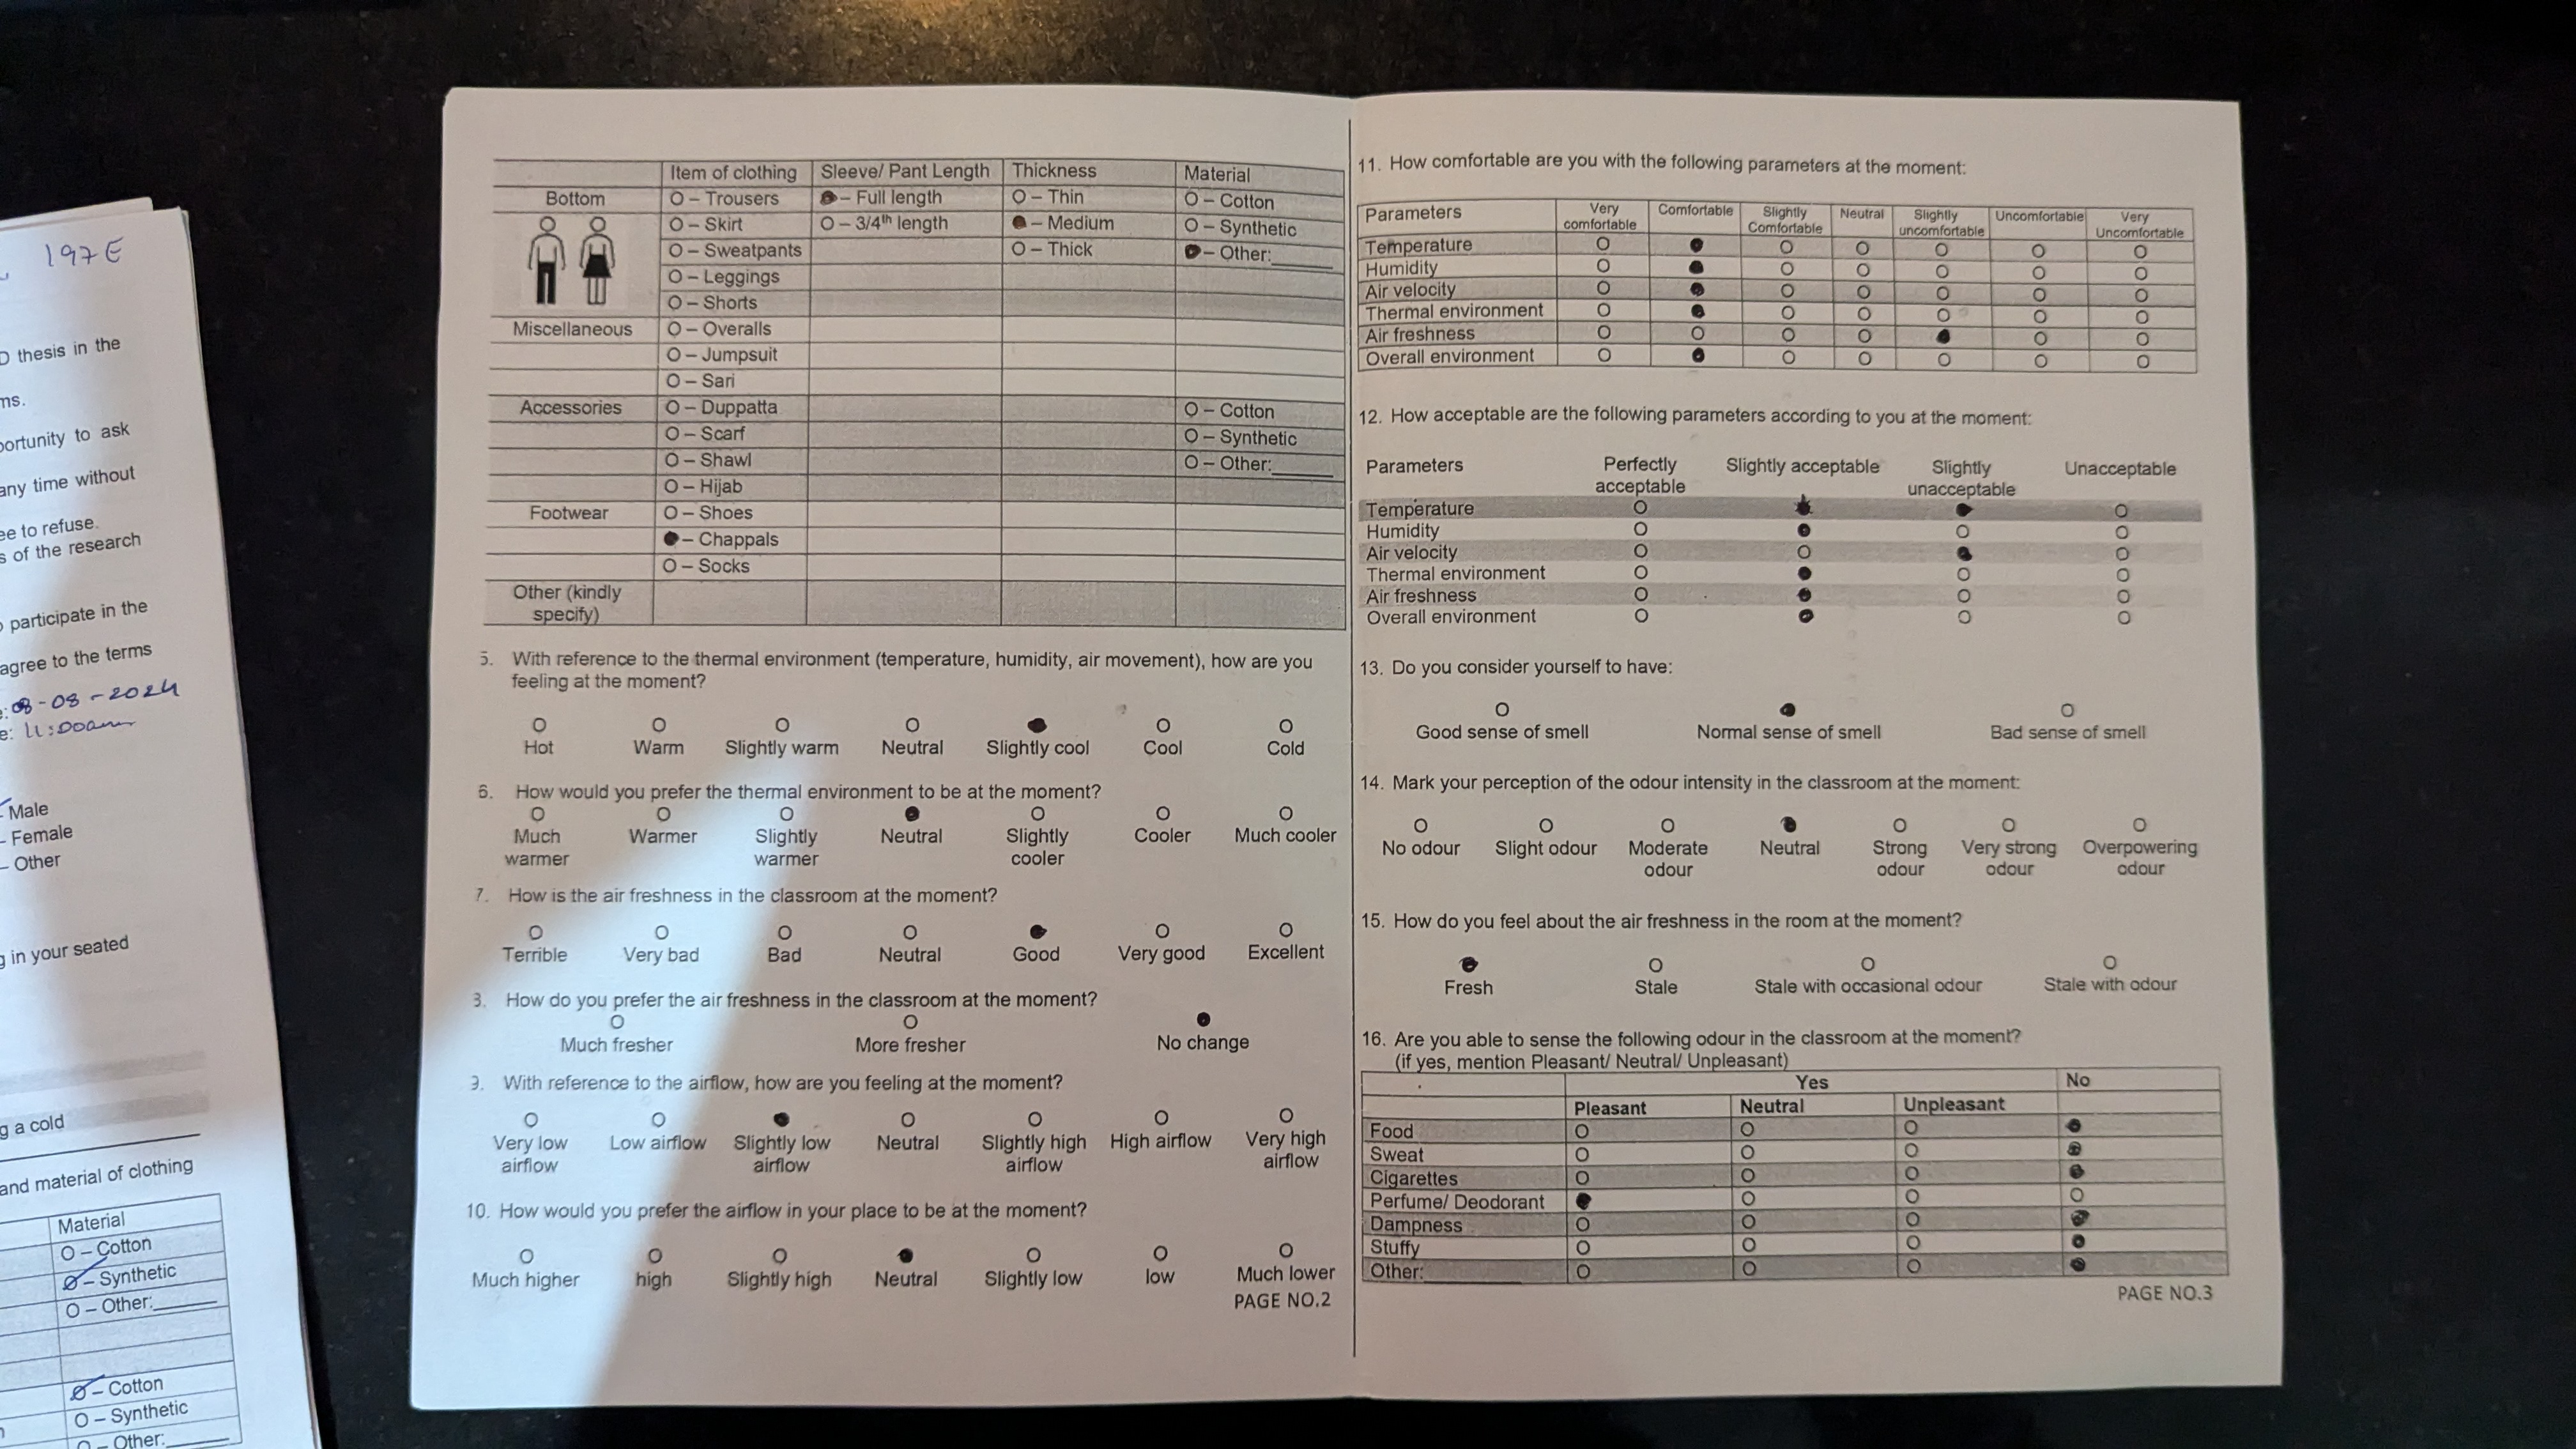 197E
D thesis in the
ms.
portunity to ask
any time without
ee to refuse.
s of the research
participate in the
agree to the terms
e: 08-08-2024
e: 11:00am
Male
Female
Other
g in your seated
g a cold
and material of clothing
Material
O – Cotton
O – Synthetic
O – Other:______
O – Cotton
O – Synthetic
O – Other:______
Item of clothing Sleeve/ Pant Length Thickness Material
Bottom O – Trousers – Full length O – Thin O – Cotton
O – Skirt O – 3/4th length – Medium O – Synthetic
O – Sweatpants O – Thick – Other:______
O – Leggings
O – Shorts
Miscellaneous O – Overalls
O – Jumpsuit
O – Sari
Accessories O – Duppatta O – Cotton
O – Scarf O – Synthetic
O – Shawl O – Other:______
O – Hijab
Footwear O – Shoes
– Chappals
O – Socks
Other (kindly
specify)
5. With reference to the thermal environment (temperature, humidity, air movement), how are you
feeling at the moment?
Hot Warm Slightly warm Neutral Slightly cool Cool Cold
6. How would you prefer the thermal environment to be at the moment?
Much Warmer Slightly Neutral Slightly Cooler Much cooler
warmer warmer cooler
7. How is the air freshness in the classroom at the moment?
Terrible Very bad Bad Neutral Good Very good Excellent
3. How do you prefer the air freshness in the classroom at the moment?
Much fresher More fresher No change
9. With reference to the airflow, how are you feeling at the moment?
Very low Low airflow Slightly low Neutral Slightly high High airflow Very high
airflow airflow airflow airflow
10. How would you prefer the airflow in your place to be at the moment?
Much higher high Slightly high Neutral Slightly low low Much lower
PAGE NO.2
11. How comfortable are you with the following parameters at the moment:
Parameters Very Comfortable Slightly Neutral Slightly Uncomfortable Very
comfortable Comfortable uncomfortable Uncomfortable
Temperature
Humidity
Air velocity
Thermal environment
Air freshness
Overall environment
12. How acceptable are the following parameters according to you at the moment:
Parameters Perfectly Slightly acceptable Slightly Unacceptable
acceptable unacceptable
Temperature
Humidity
Air velocity
Thermal environment
Air freshness
Overall environment
13. Do you consider yourself to have:
Good sense of smell Normal sense of smell Bad sense of smell
14. Mark your perception of the odour intensity in the classroom at the moment:
No odour Slight odour Moderate Neutral Strong Very strong Overpowering
odour odour odour odour
15. How do you feel about the air freshness in the room at the moment?
Fresh Stale Stale with occasional odour Stale with odour
16. Are you able to sense the following odour in the classroom at the moment?
(if yes, mention Pleasant/ Neutral/ Unpleasant)
Yes No
Pleasant Neutral Unpleasant
Food
Sweat
Cigarettes
Perfume/ Deodorant
Dampness
Stuffy
Other:______
PAGE NO.3